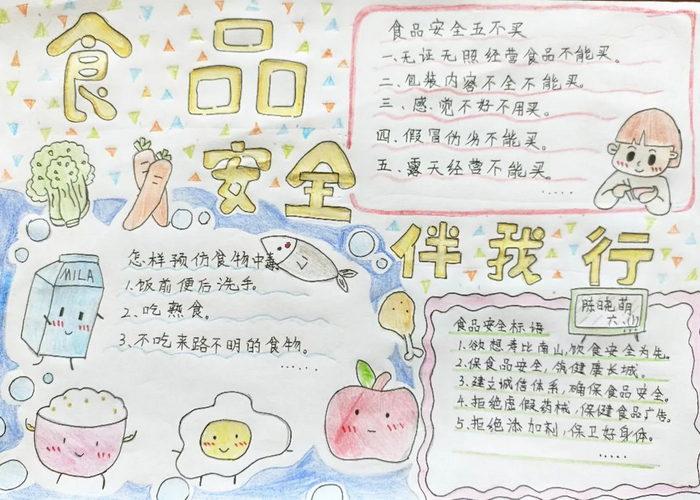 食品
安全
伴我行
食品安全五不买
一、无证无照经营食品不能买。
二、包装内容不全不能买。
三、感觉不好不用买。
四、假冒伪劣不能买。
五、露天经营不能买。
......
MILA
怎样预防食物中毒
1.饭前便后洗手。
2.吃熟食。
3.不吃来路不明的食物。
......
陈晓萌
食品安全标语
1.欲想寿比南山,饮食安全为先。
2.保食品安全,筑健康长城。
3.建立诚信体系,确保食品安全。
4.拒绝虚假药械,保健食品广告。
5.拒绝添加剂,保卫好身体。
......